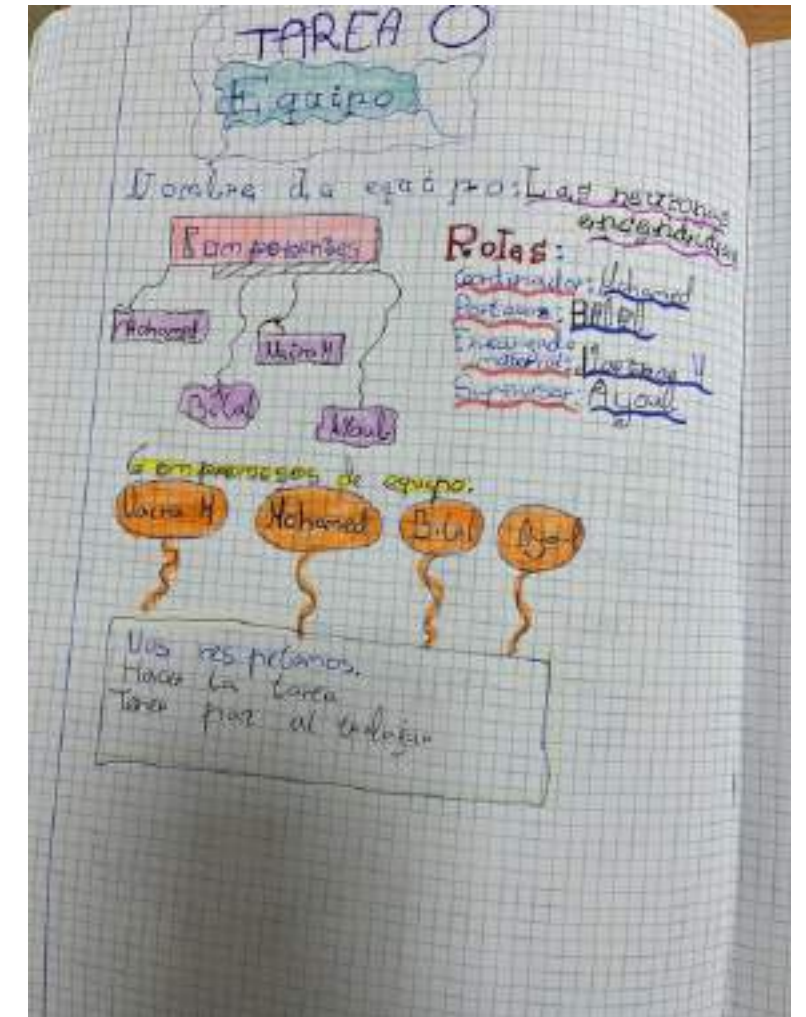 TAREA 0
Equipo
Nombre de equipo: Las neuronas
encendidas
Componentes
Mohamed
Bilal
Ayoub
Roles:
Coordinador: Mohamed
Portavoz: Bilal
material:
Supervisor: Ayoub
Compromisos de equipo.
Mohamed
Bilal
Ayoub
Nos respetamos.
Hacer la tarea
Tener paz al trabajar